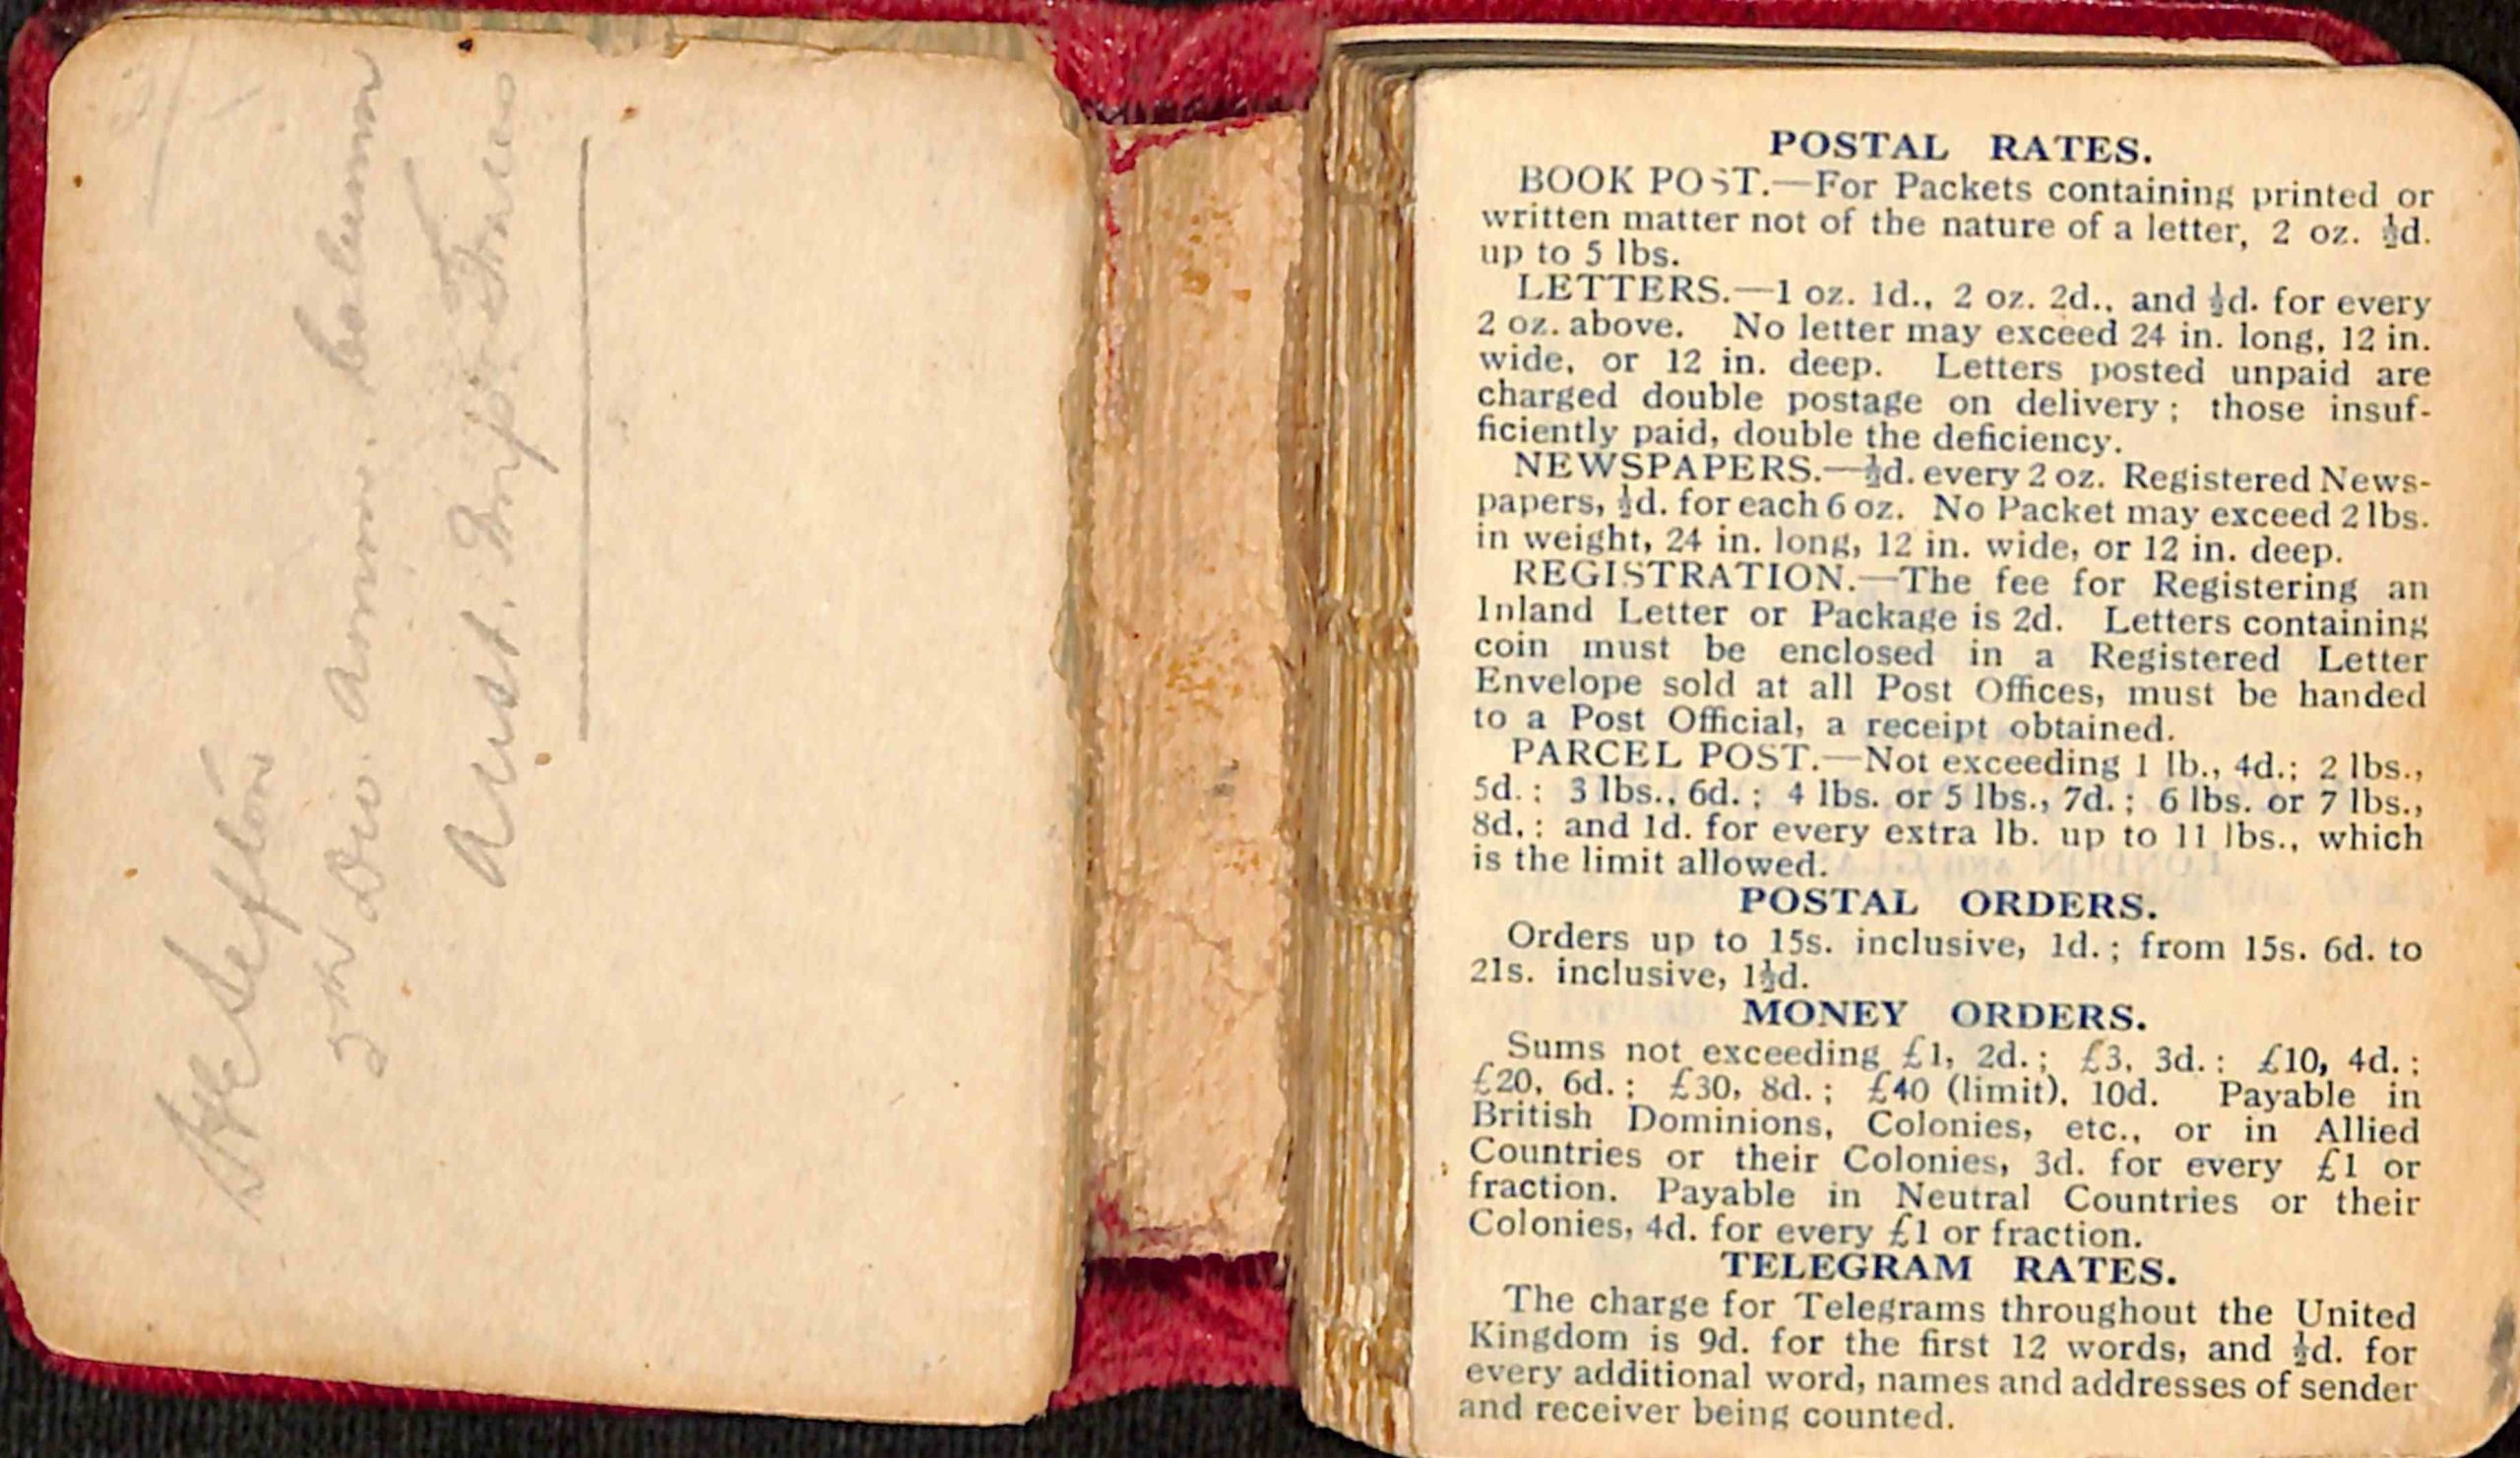 Sefton
2nd Div. Ammn. Column
Aust. Imp. Forces
POSTAL RATES.
BOOK POST.—For Packets containing printed or
written matter not of the nature of a letter, 2 oz. ½d.
up to 5 lbs.
LETTERS.—1 oz. 1d., 2 oz. 2d., and ½d. for every
2 oz. above. No letter may exceed 24 in. long, 12 in.
wide, or 12 in. deep. Letters posted unpaid are
charged double postage on delivery; those insuf-
ficiently paid, double the deficiency.
NEWSPAPERS.—½d. every 2 oz. Registered News-
papers, ½d. for each 6 oz. No Packet may exceed 2 lbs.
in weight, 24 in. long, 12 in. wide, or 12 in. deep.
REGISTRATION.—The fee for Registering an
Inland Letter or Package is 2d. Letters containing
coin must be enclosed in a Registered Letter
Envelope sold at all Post Offices, must be handed
to a Post Official, a receipt obtained.
PARCEL POST.—Not exceeding 1 lb., 4d.; 2 lbs.,
5d.; 3 lbs., 6d.; 4 lbs. or 5 lbs., 7d.; 6 lbs. or 7 lbs.,
8d.; and 1d. for every extra lb. up to 11 lbs., which
is the limit allowed.
POSTAL ORDERS.
Orders up to 15s. inclusive, 1d.; from 15s. 6d. to
21s. inclusive, 1½d.
MONEY ORDERS.
Sums not exceeding £1, 2d.; £3, 3d.; £10, 4d.;
£20, 6d.; £30, 8d.; £40 (limit), 10d. Payable in
British Dominions, Colonies, etc., or in Allied
Countries or their Colonies, 3d. for every £1 or
fraction. Payable in Neutral Countries or their
Colonies, 4d. for every £1 or fraction.
TELEGRAM RATES.
The charge for Telegrams throughout the United
Kingdom is 9d. for the first 12 words, and ½d. for
every additional word, names and addresses of sender
and receiver being counted.